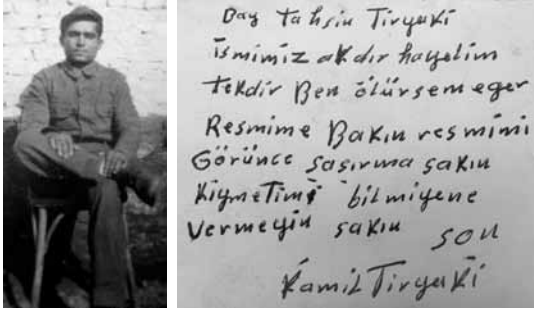 Bay Tahsin Tiryaki
ismimiz akdır hayelim
tekdir Ben ölürsem eger
Resmime Bakın resmimi
Görünce şaşırma sakın
Kiymetimi bilmiyene
Vermeyin sakın
son
Kamil Tiryaki